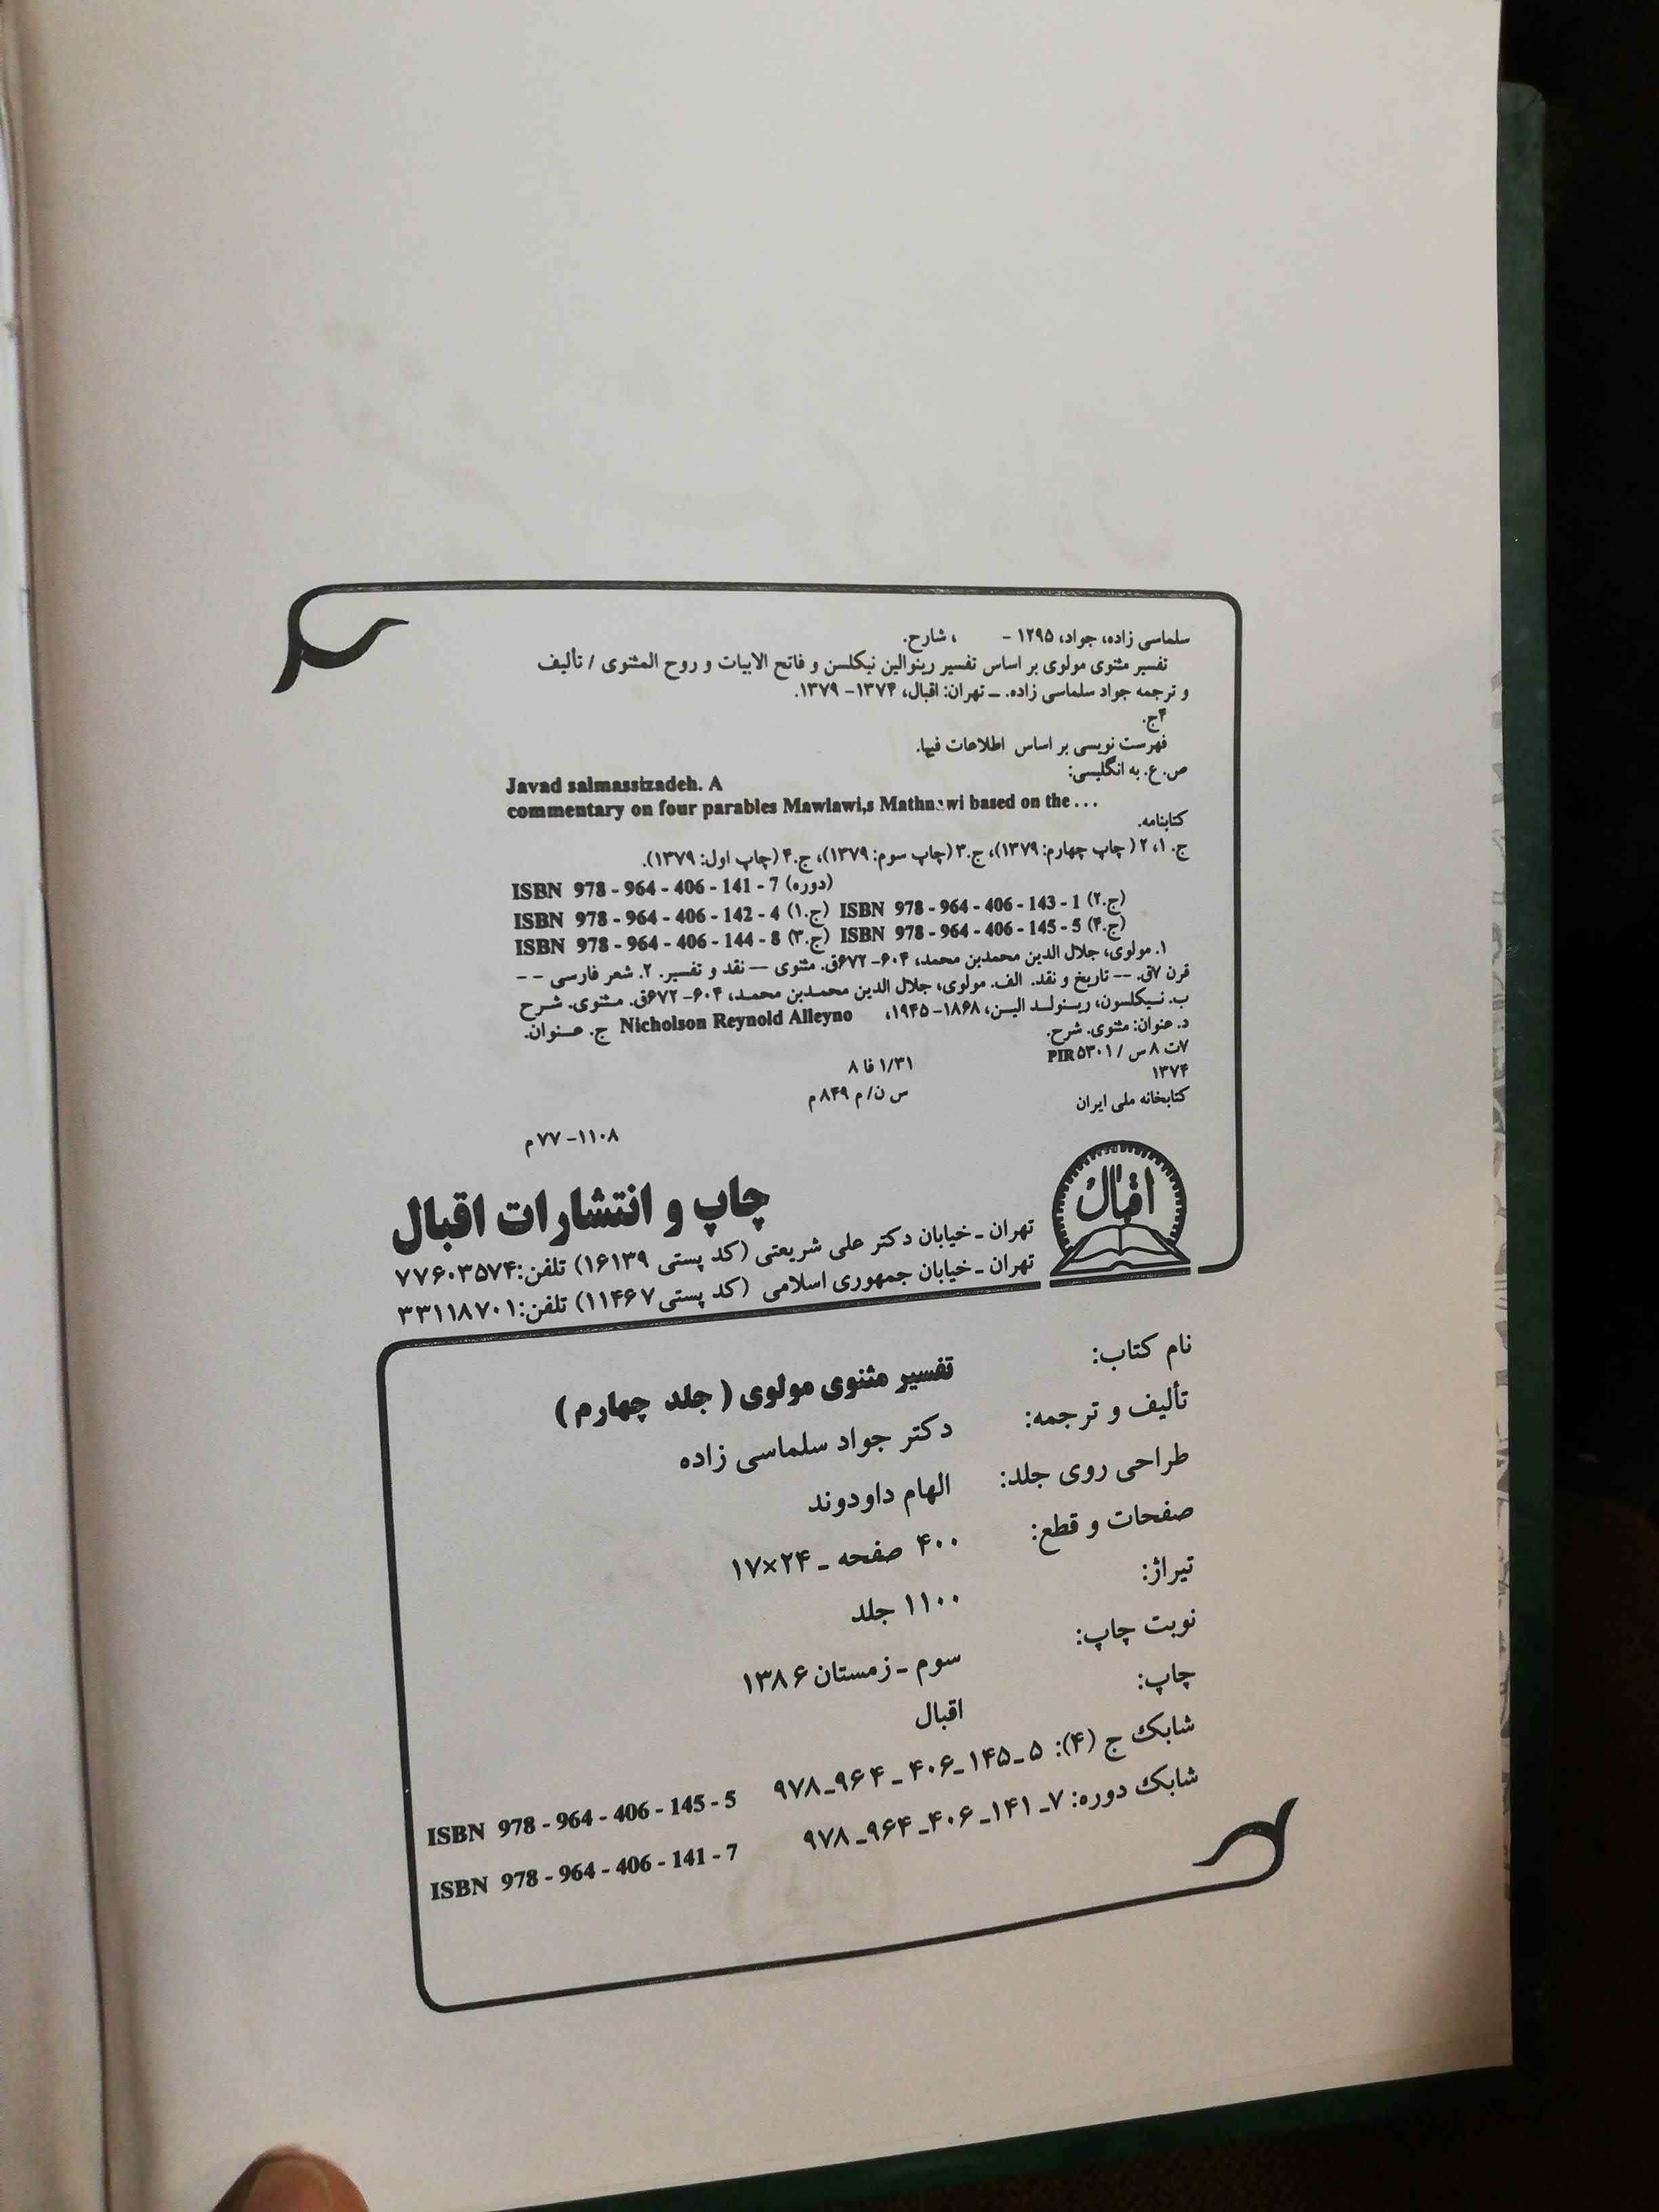 سلماسی زاده، جواد، ۱۲۹۵ - ، شارح.
تفسیر مثنوی مولوی بر اساس تفسیر رینوالین نیکلسن و فاتح الابیات و روح المثنوی / تألیف
و ترجمه جواد سلماسی زاده. ــ تهران: اقبال، ۱۳۷۴- ۱۳۷۹.
۴ج.
فهرست نویسی بر اساس اطلاعات فیپا.
ص. ع. به انگلیسی: Javad salmassizadeh. A
commentary on four parables Mawlawi,s Mathnawi based on the ...
کتابنامه.
ج. ۱، ۲ ( چاپ چهارم: ۱۳۷۹)، ج.۳ (چاپ سوم: ۱۳۷۹)، ج.۴ (چاپ اول: ۱۳۷۹).
ISBN 978 - 964 - 406 - 141 - 7 (دوره)
ISBN 978 - 964 - 406 - 142 - 4 (ج.۱) ISBN 978 - 964 - 406 - 143 - 1 (ج.۲)
ISBN 978 - 964 - 406 - 144 - 8 (ج.۳) ISBN 978 - 964 - 406 - 145 - 5 (ج.۴)
۱. مولوی، جلال الدین محمدبن محمد، ۶۰۴- ۶۷۲ق. مثنوی -- نقد و تفسیر. ۲. شعر فارسی --
قرن ۷ق. -- تاریخ و نقد. الف. مولوی، جلال الدین محمدبن محمد، ۶۰۴- ۶۷۲ق. مثنوی. شرح
ب. نیکلسون، رینولد الین، ۱۸۶۸- ۱۹۴۵، Nicholson Reynold Alleyno ج. عنوان.
د. عنوان: مثنوی. شرح.
۷ت ۸س / PIR ۵۳۰۱ ۱/۳۱ فا ۸
۱۳۷۴ س ن/ م ۸۴۹ م
کتابخانه ملی ایران
۱۱۰۸- ۷۷ م
اقبال
چاپ و انتشارات اقبال
تهران ـ خیابان دکتر علی شریعتی (کد پستی ۱۶۱۳۹) تلفن: ۷۷۶۰۳۵۷۴
تهران ـ خیابان جمهوری اسلامی (کد پستی ۱۱۴۶۷) تلفن: ۳۳۱۱۸۷۰۱
نام کتاب: تفسیر مثنوی مولوی ( جلد چهارم )
تألیف و ترجمه: دکتر جواد سلماسی زاده
طراحی روی جلد: الهام داودوند
صفحات و قطع: ۴۰۰ صفحه ـ ۲۴×۱۷
تیراژ: ۱۱۰۰ جلد
نوبت چاپ: سوم ـ زمستان ۱۳۸۶
چاپ: اقبال
شابک ج (۴): ۵ـ۱۴۵ـ۴۰۶ ـ ۹۶۴ـ۹۷۸ ISBN 978 - 964 - 406 - 145 - 5
شابک دوره: ۷ـ ۱۴۱ـ ۴۰۶ـ ۹۶۴ـ ۹۷۸ ISBN 978 - 964 - 406 - 141 - 7